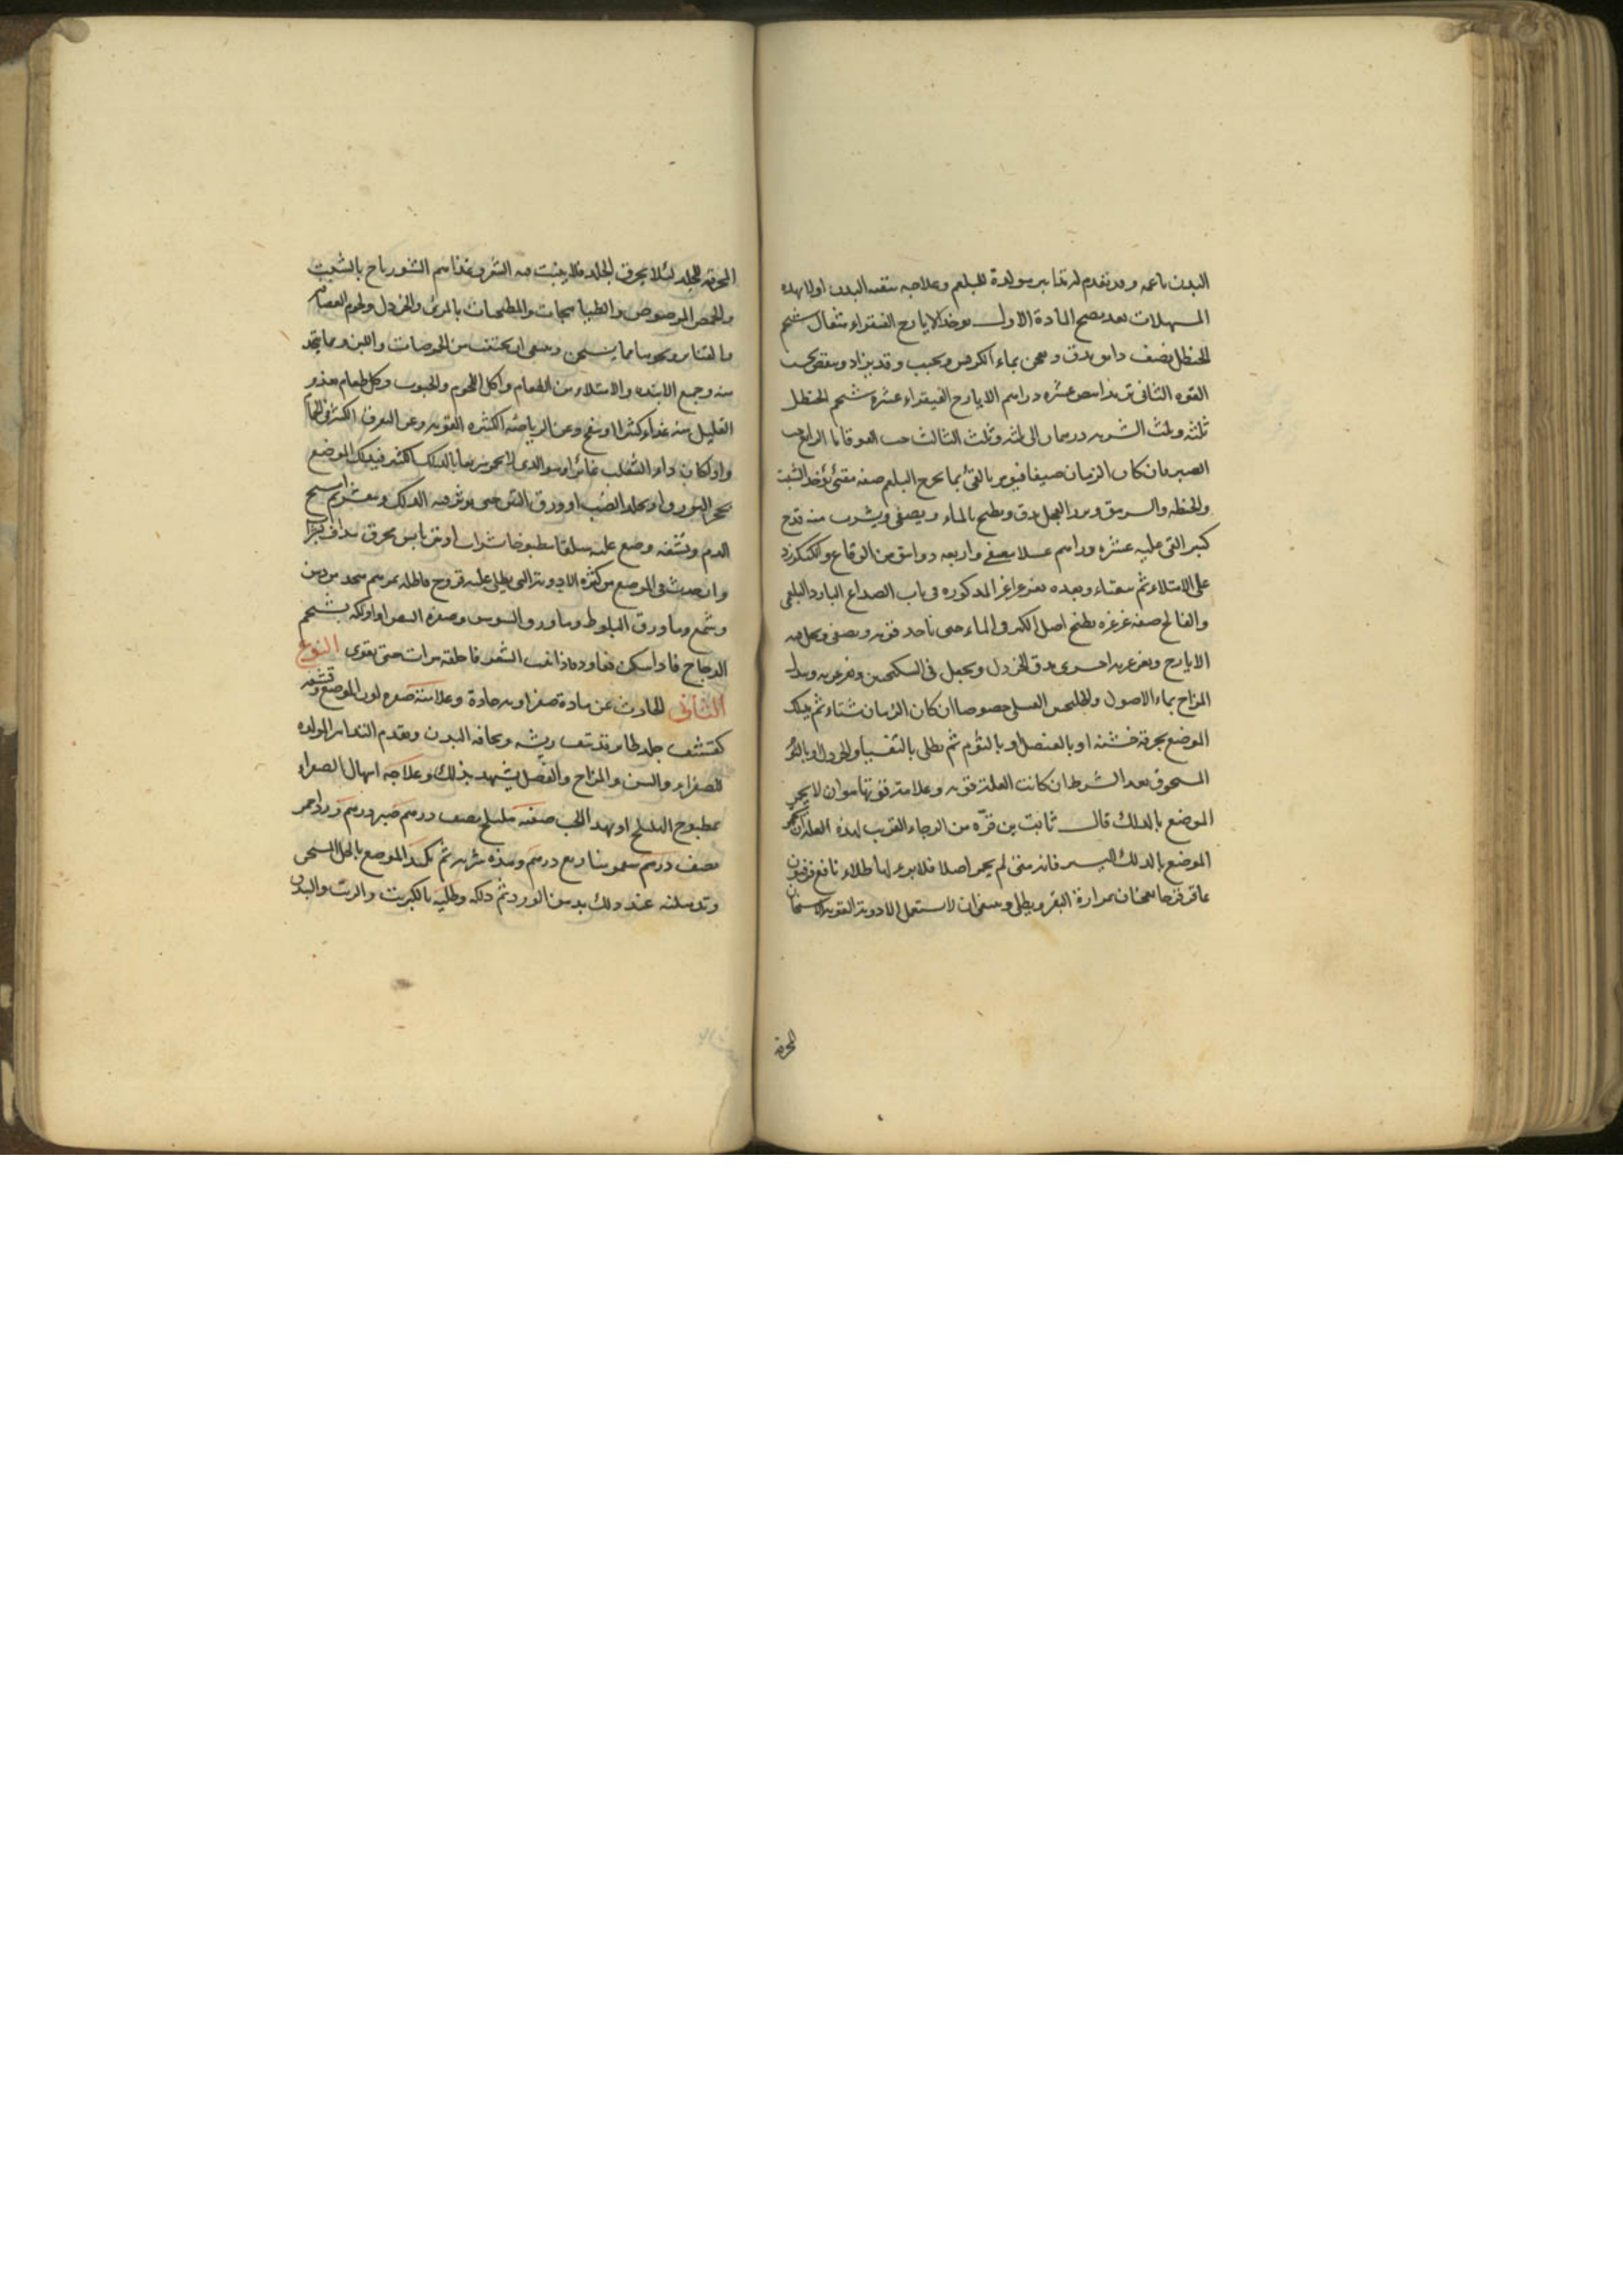 البدن باعمه وقد تقدم له تدابير مولدة للبلغم وعلاجه تنقية البدن اولا بهذه
المسهلات بعد نضج المادة الاول يوخذ الايارج الفيقراء مثقال شحم
الحنظل نصف دانق يدق ويعجن بماء الكرفس ويحبب وقد يزاد وينقص بحسب
القوة الثاني عشره دراهم الايارج الفيقراء عشرة شحم الحنظل
ثلثة وثلث الشربه درهمان الى ثلثه وثلث الثالث حب القوقايا الرابع حب
الصبر فان كان الزمان صيفا فيؤمر بالقئ بما يخرج البلغم صفة مقئ يؤخذ الشبت
والسرمق وبزر الفجل يدق ويطبخ بالماء ويصفى ويشرب منه قدح
كبير القى عليه عشره دراهم عسلا مصفى واربعه دوانق من
على الامتلاء ثم يتقياء وبعده يغرغر المذكوره فى باب الصداع البارد البلغمى
والفالج صفة غرغره يطبخ اصل الكبر فى الماء حتى تاخذ قوته ويصفى ويحل فيه
الايارج ويغرغر به اخرى يدق الخردل ويجعل فى السكنجبين ويغرغر به ويبدل
المزاج بماء الاصول والجلنجبين العسلى خصوصا ان كان الزمان شتاء ثم يدلك
الموضع بخرقة خشنه او بالعنصل او بالثوم ثم يطلى بالثفسيا والخردل او
المسحوق بعد الشرط ان كانت العلة قويه وعلامة قوتها هو ان لا يحمر
الموضع بالدلك قال ثابت بن قرّه من الرجاء القريب لهذه العلة ان يحمر
الموضع بالدلك اليسير فانه متى لم يحمر اصلا فلا برء لها طلاء نافع فرفيون
عاقر قرحا يعجنان بمرارة البقر ويطلى وينبغى ان لا يستعمل الادوية القويه
المحرقه
المحرقه للجلد لئلا يحرق الجلد فلا ينبت فيه الشعر وغذاءهم الشورباج بالشبت
والحمص المرضوض والطباهجات والمطجنات بالمرى والخردل ولحوم العصافير
والقنابر ونحوها مما يسخن وينبغى ان يجتنب من الحموضات واللبن وما يتخذ
منه وجميع الانبذه والامتلاء من الطعام واكل اللحوم والحبوب وكل طعام يغذو
القليل منه غذاء كثيرا وينفخ وعن الرياضه الكثيره القويه وعن التعرق الكثير فى الحمام
واذا كان داء الثعلب وهو الذى لا يحمر بالدلك الكثير فيدلك الموضع
بحجر البورق او بجلد الضب او ورق التين حتى يوثر فيه الدلك ويتقشر ثم امسح
الدم ونشفه وضع عليه سلقا مطبوخا بشراب او تين يابس محرق
وان حدث فى الموضع من كثرة الادوية التى يطلى عليه قروح فاطله بمرهم متخذ من دهن
وشمع وماء ورق البلوط وماء ورق السوسن وصفرة البيض او ادلكه بشحم
الدجاج فاذا سكن فعاوده واذا نبت الشعر فاحلقه مرات حتى يقوى النوع
الثانى الحادث عن مادة صفراويه حادة وعلامته صفره لون الموضع وقشفه
كقشف جلد طائر قد نتف ريشه ونحافه البدن وتقدم التدابير المولده
للصفراء والسن والمزاج والفصل يشهد بذلك وعلاجه اسهال الصفراء
بمطبوخ الهليلج او بهذا الحب صفته هليلج نصف درهم صبر درهم ورد احمر
نصف درهم سقمونيا ربع درهم وهذه شربه ثم تكمد الموضع بالخل السخن
وتدهنه عند ذلك بدهن الورد ثم دلكه وطليه بالكبريت والزيت